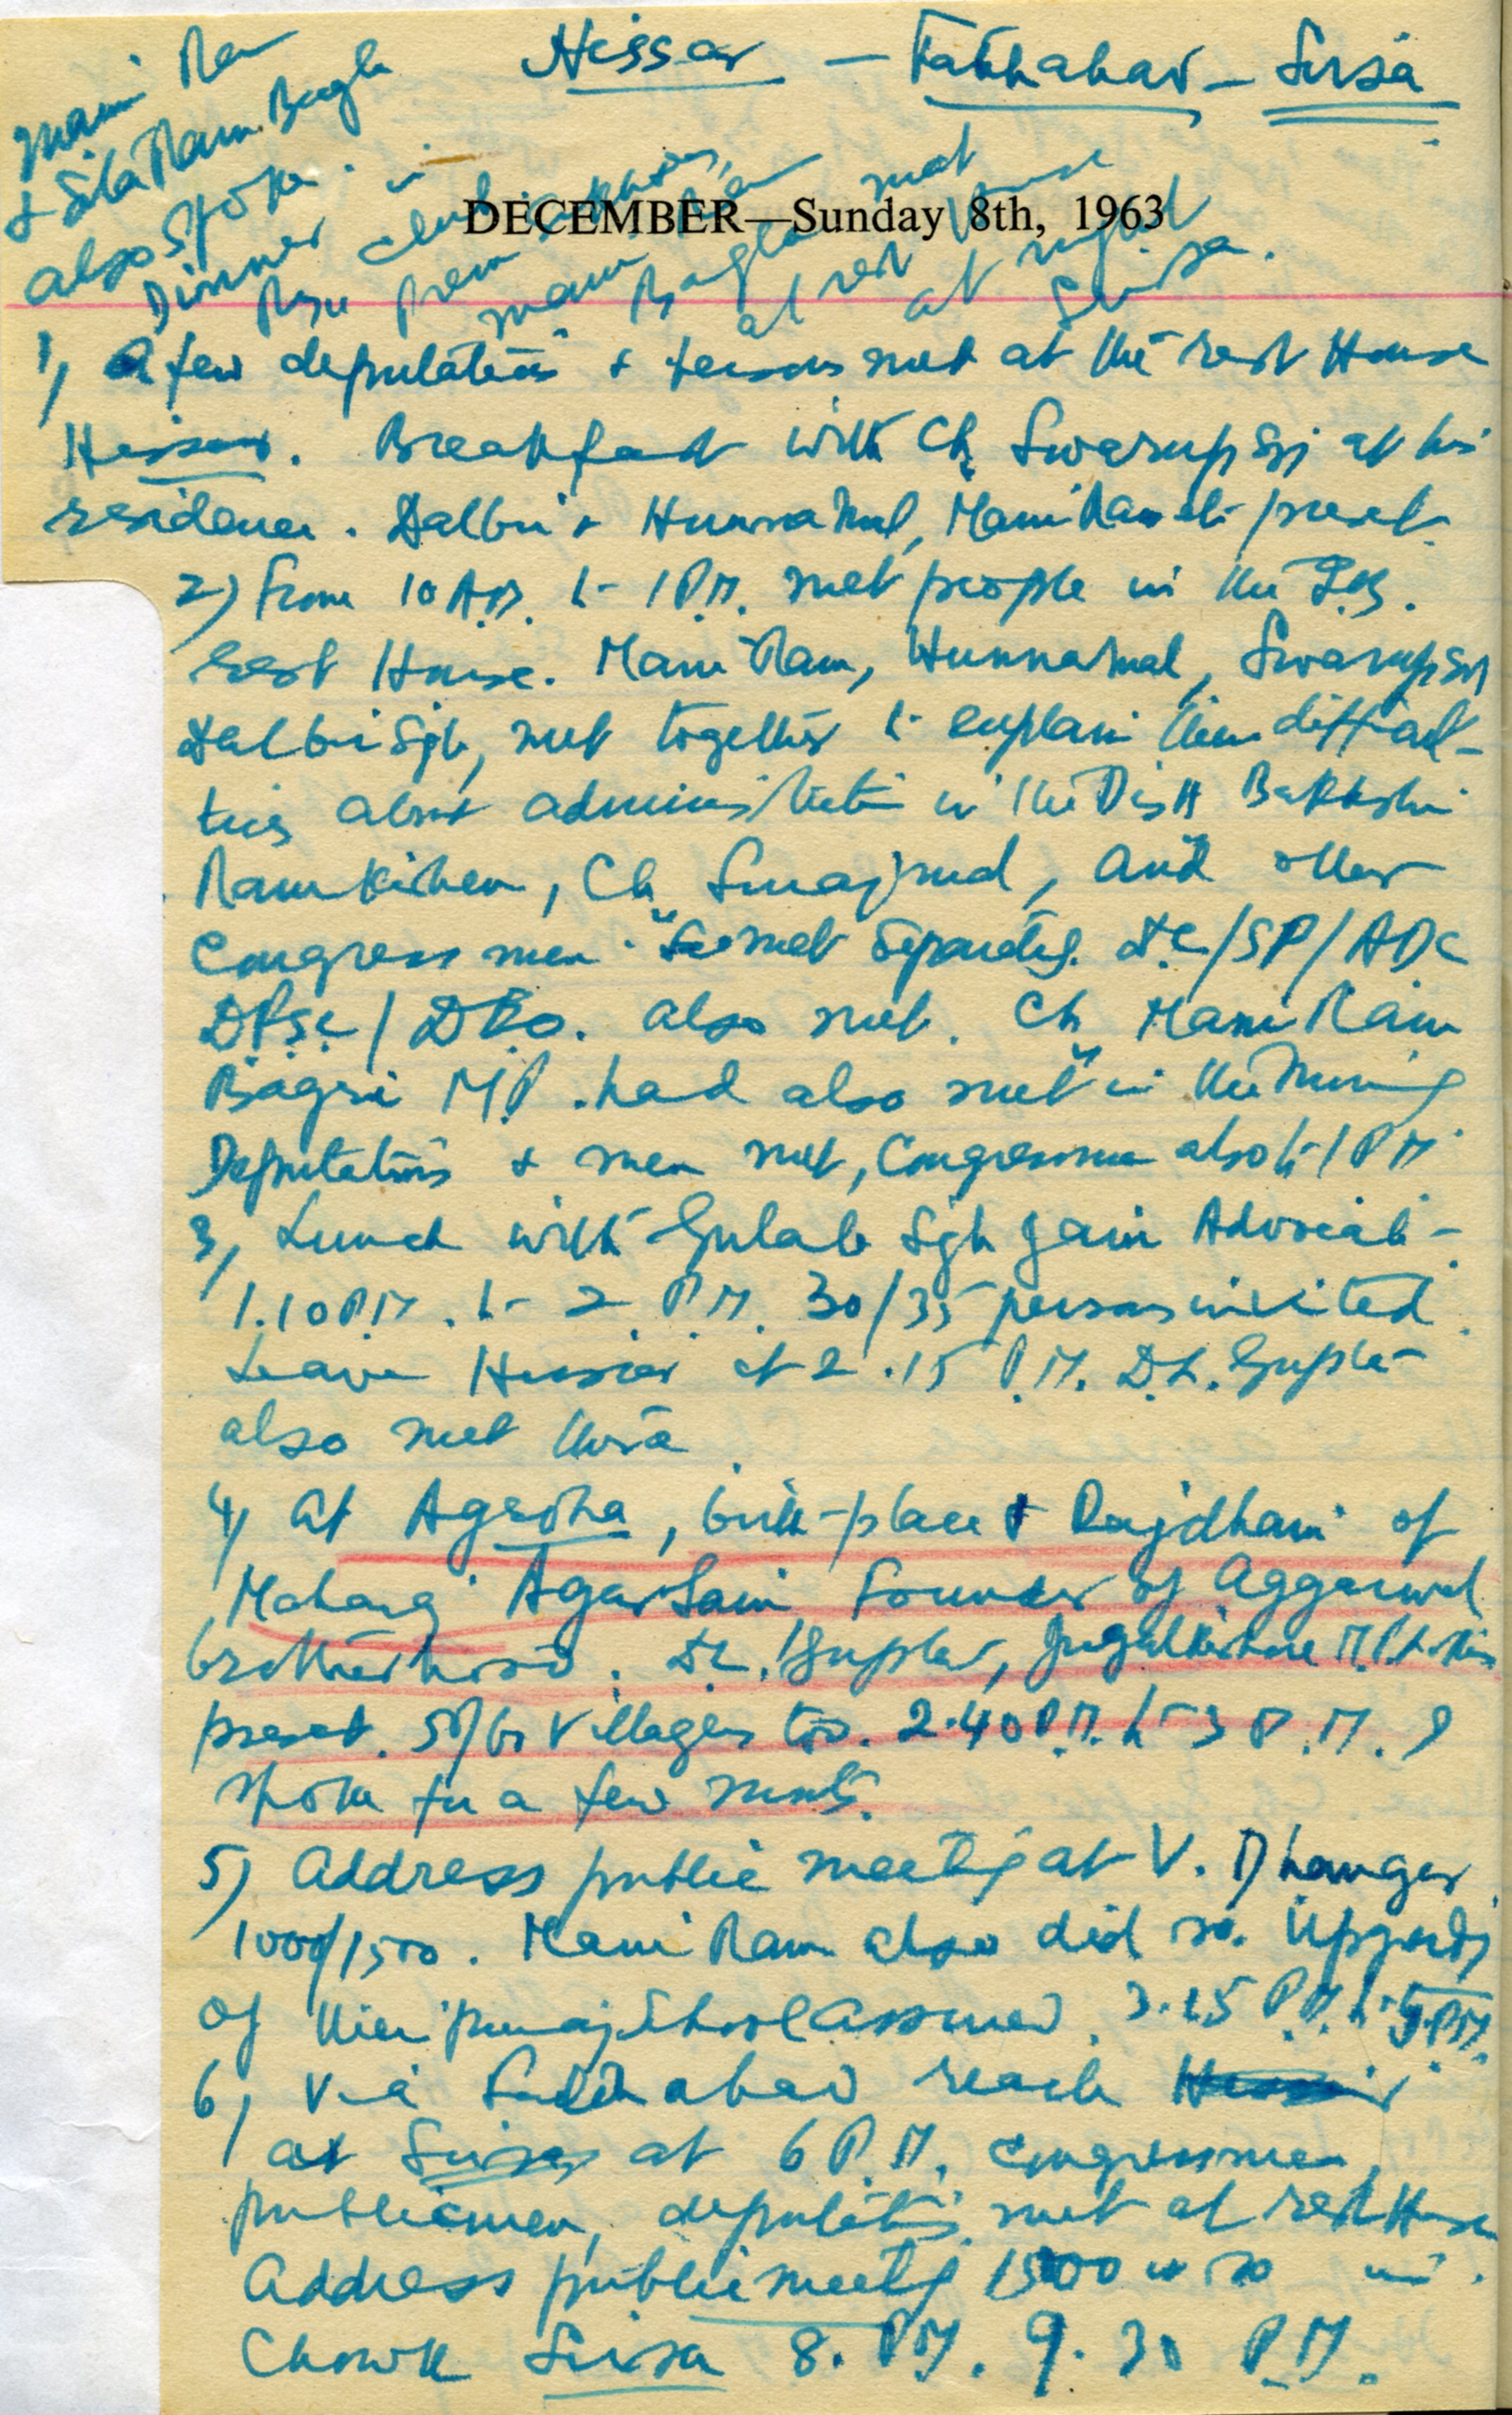 Hissar — Fatehabad — Sirsa
Mani Ram
& Sita Ram Bagla
also spoke.
DECEMBER—Sunday 8th, 1963
Dinner in club
Prem
Mani Ram Bagla met
at rest House
at night
Sirsa.
1, A few deputations & persons met at the rest House
Hissar. Breakfast with Ch Swarup Sgj at his
residence. Dalbir & Hunnamal, Mani Ram etc present.
2) From 10 A.M. to 1 P.M. met people in the P.W.
rest House. Mani Ram, Hunnamal, Swarup Sgj
Dalbir Sgh, met together to explain their difficul-
ties about administration in the Distt Bakhshi
Ram Kishen, Ch Surajmal, and other
Congress men. met separately. D.C/SP/ADC
also met. Ch Mani Ram
Bagri M.P. had also met in the morning
Deputations & men met, Congressmen also to 1 P.M.
3, Lunch with Gulab Sgh Jain Advocate -
1.10 P.M. to 2 P.M. 30/35 persons invited.
Leave Hissar at 2.15 P.M. D.L. Gupta
also met there
4, At Agroha, birth-place & Rajdhani of
Maharaj Agarsain founder of Aggarwal
brotherhood. Gupta, Jugalkishore
present. 50/60 villagers too. 2.40 P.M. to 3 P.M. I
spoke for a few minutes.
5) Address public meeting at V. Dhanger
1000/1500. Mani Ram also did so. Upgrading
of their primary School assured. 3.15 P.M. to 5 P.M.
6, Via Fatehabad reach
at Sirsa at 6 P.M. Congressmen,
publicmen, deputations met at rest House
Address public meeting 1500 or so in
Chowk Sirsa 8. P.M. 9.30 P.M.